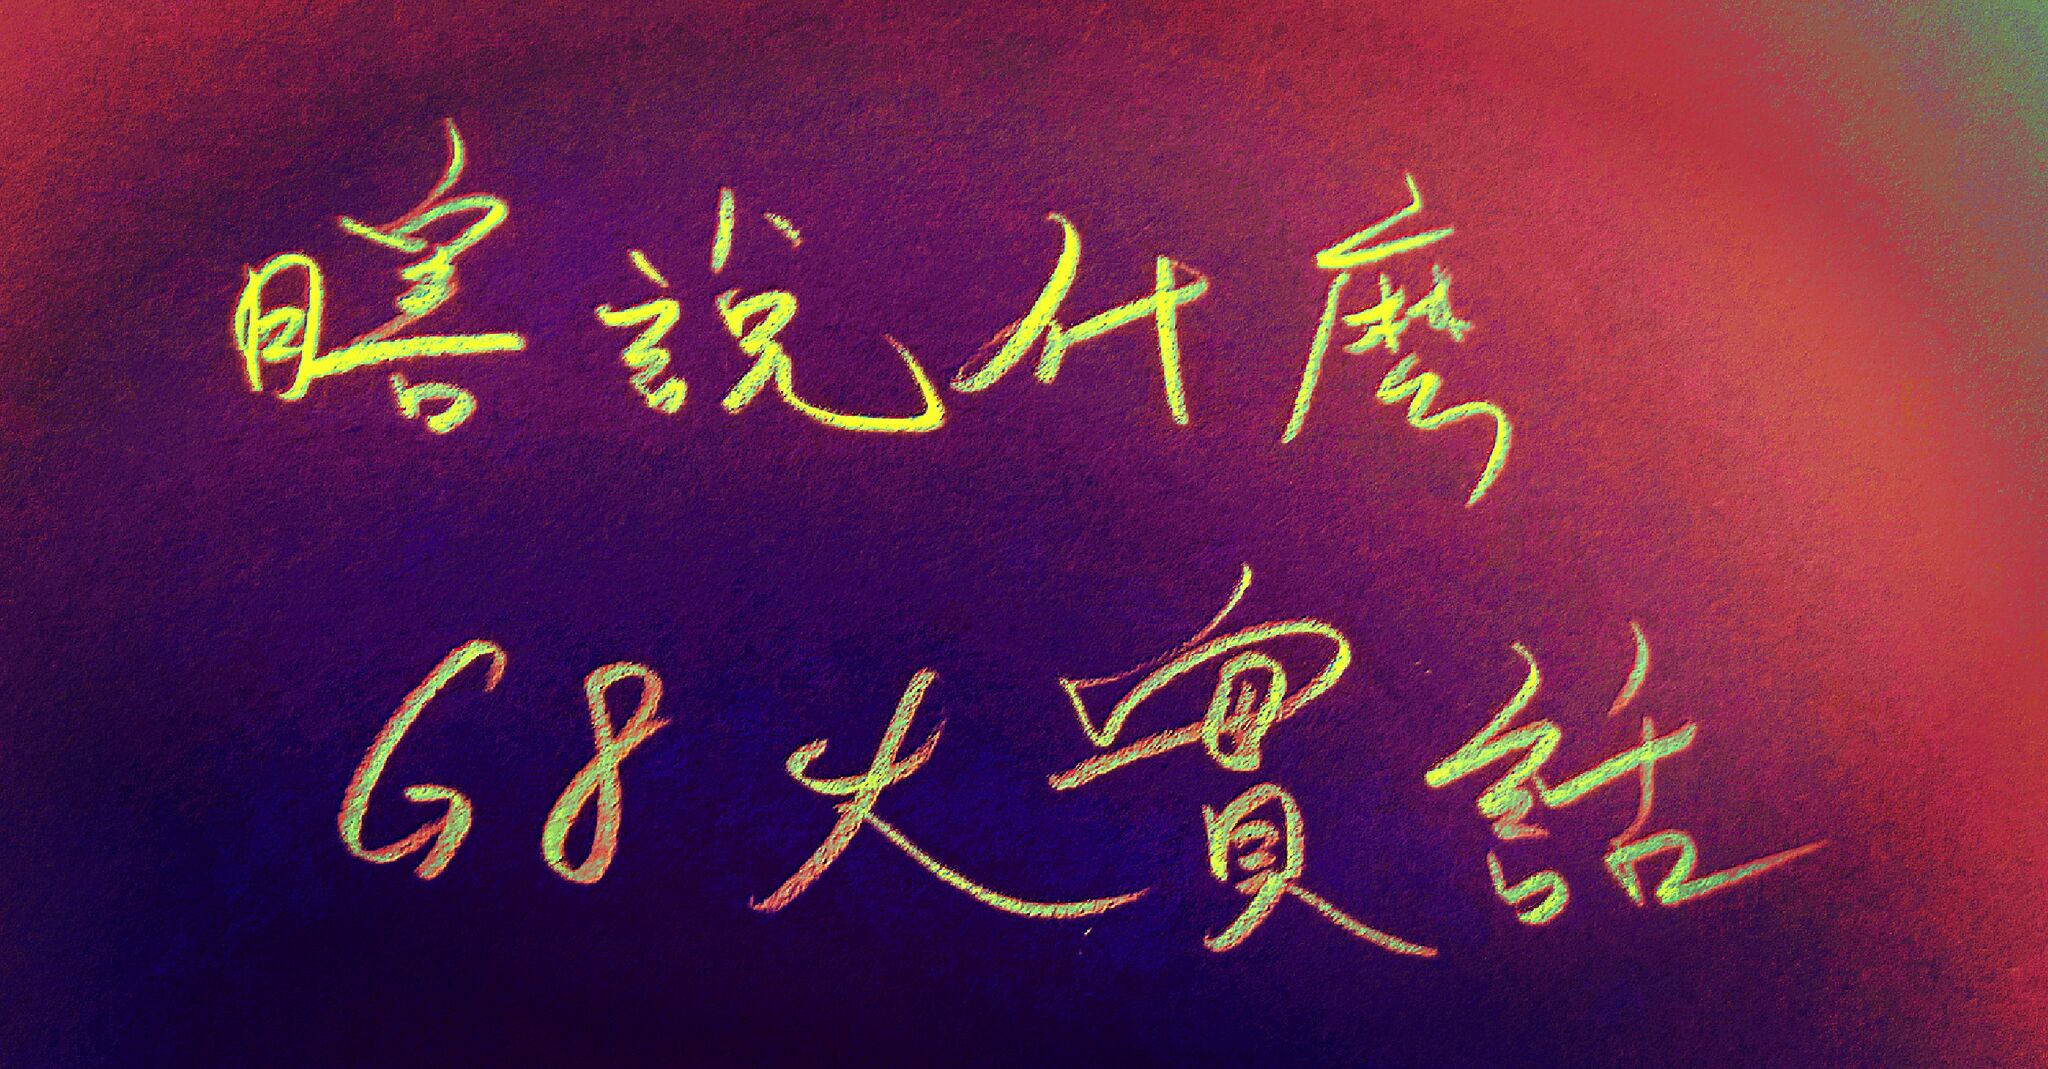 瞎說什麼
G8大實話